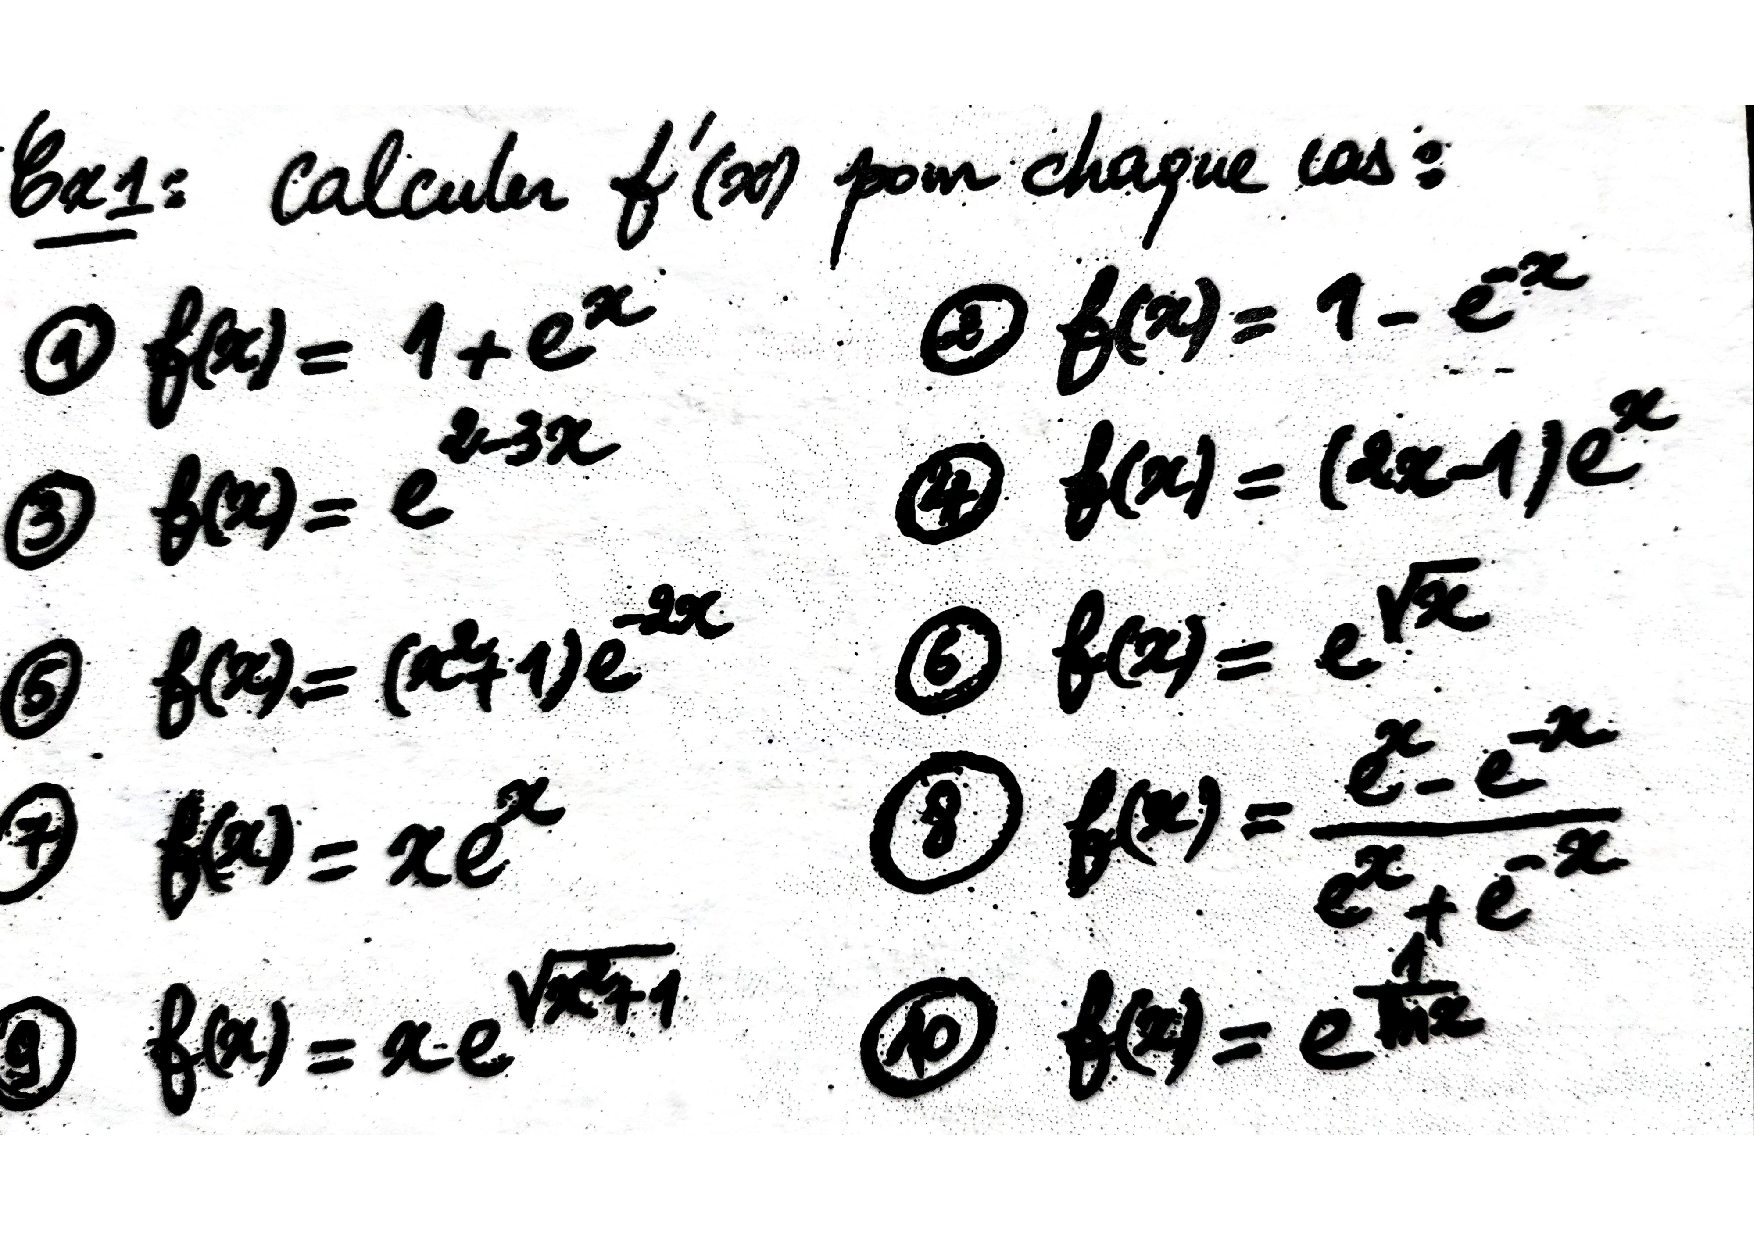 Ex1: Calculer f'(x) pour chaque cas:
① f(x) = 1 + e^x ② f(x) = 1 - e^{-x}
③ f(x) = e^{2-3x} ④ f(x) = (2x-1)e^x
⑤ f(x) = (x²+1)e^{-2x} ⑥ f(x) = e^{√x}
⑦ f(x) = xe^x ⑧ f(x) = \frac{e^x - e^{-x}}{e^x + e^{-x}}
⑨ f(x) = x·e^{\sqrt{x²+1}} ⑩ f(x) = e^{\frac{1}{\ln x}}